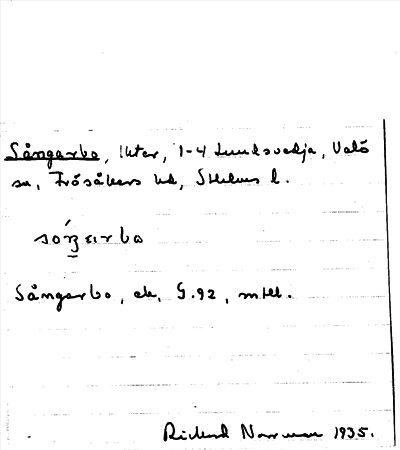 Sångarbo, lkter, 1-4 Lundsvedja, Valö
sn, Frösåkers hd, Sthlms l.
Sångarbo, ek, G.92, mtl.
Rickard Norrman 1935.